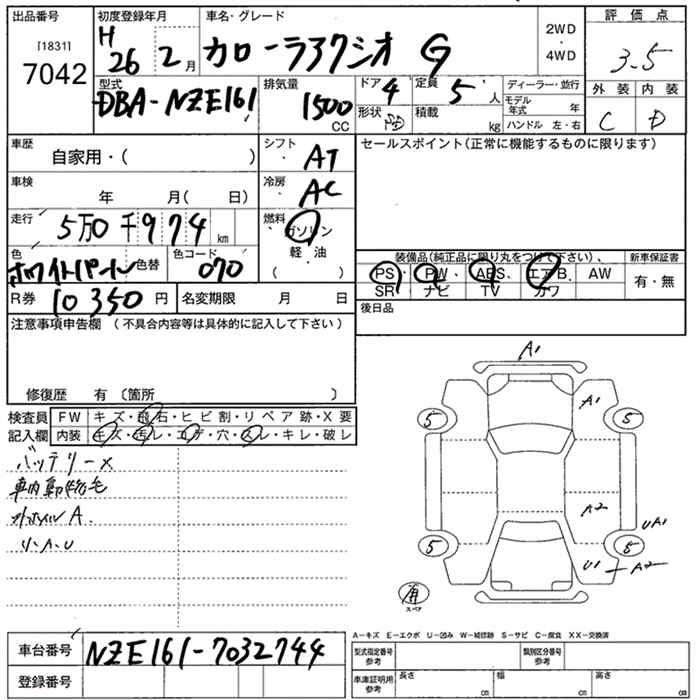 出品番号 初度登録年月 車名・グレード 評価点
[1831] H 2WD
7042 26 2月 カローラアクシオ G ・ 3.5
4WD
型式 排気量 ドア 4 定員 5 人 ディーラー・並行 外装 内装
DBA-NZE161 1500 CC 形状 積載 kg モデル年式 年 C D
ハンドル 左・右
車歴 シフト セールスポイント(正常に機能するものに限ります)
自家用・( ) ・ AT
車検 年 月( 日) 冷房 AC
走行 5万0千974 km 燃料 ガソリン
色 ホワイトパール 色替 色コード 070 軽・油 ( )
装備品(純品に限り丸をつけて下さい)、 新車保証書
PS・PW・ABS、エアB、AW 有・無
SR ナビ TV カワ
R券 10350 円 名変期限 月 日 後日品
注意事項申告欄 (不具合内容等は具体的に記入して下さい)
修復歴 有 〔箇所 〕
検査員 FW キズ・飛石・ヒビ割・リペア跡・X要
記入欄 内装 キズ・汚レ・コゲ・穴・スレ・キレ・破レ
バッテリーX
車内動物毛
ホイルA.
リ・A・U
A1
A1
5 5
A2
UA1
5 5
U1 A2
有
スペア
A−キズ E−エクボ U−凹み W−補修跡 S−サビ C−腐食 XX−交換済
車台番号 NZE161-7032744 型式指定番号 参考 類別区分番号 参考
登録番号 車庫証明用 参考 長さ cm 幅 cm 高さ cm